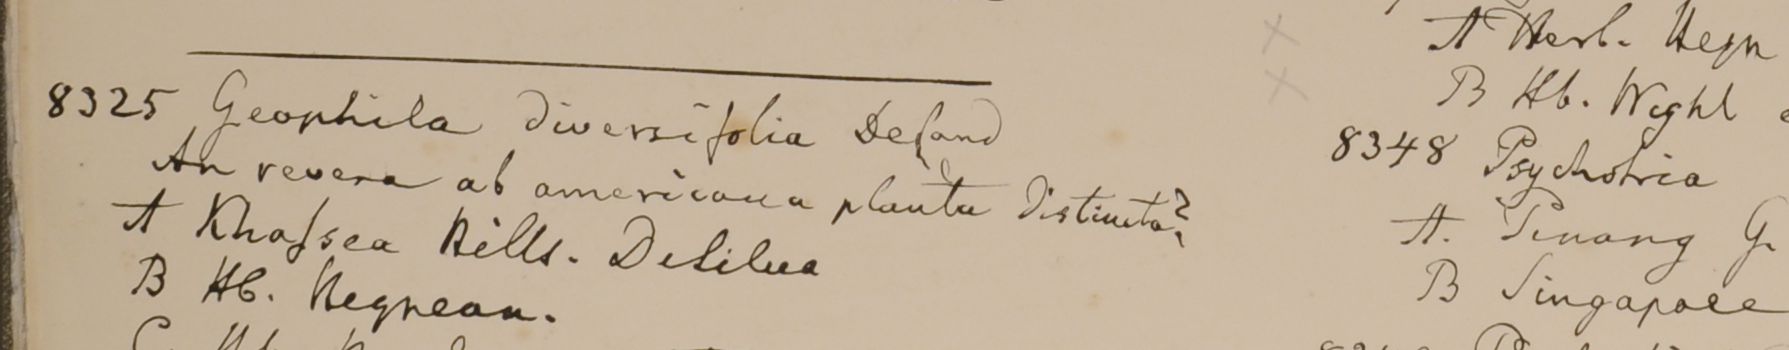 8325 Geophila diversifolia Decand
An revera ab americana planta distincta?
A Khassea Hills. DeSilva
B Hb. Heynean.
A Herb. Heyn
B Hb. Wight
8348 Psychotria
A. Penang G
B Singapore